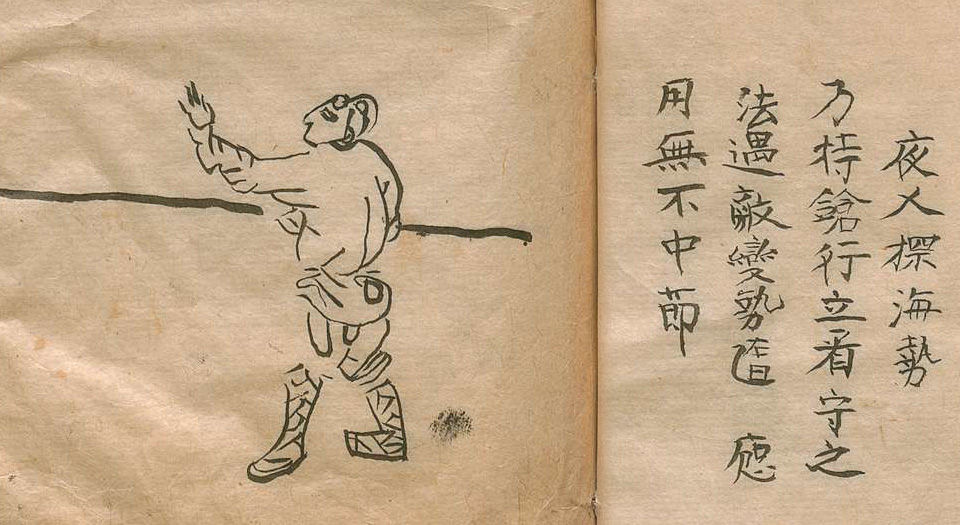 夜乂探海勢
乃持鎗行立看守之
法遇敵變勢随 應
用無不中節